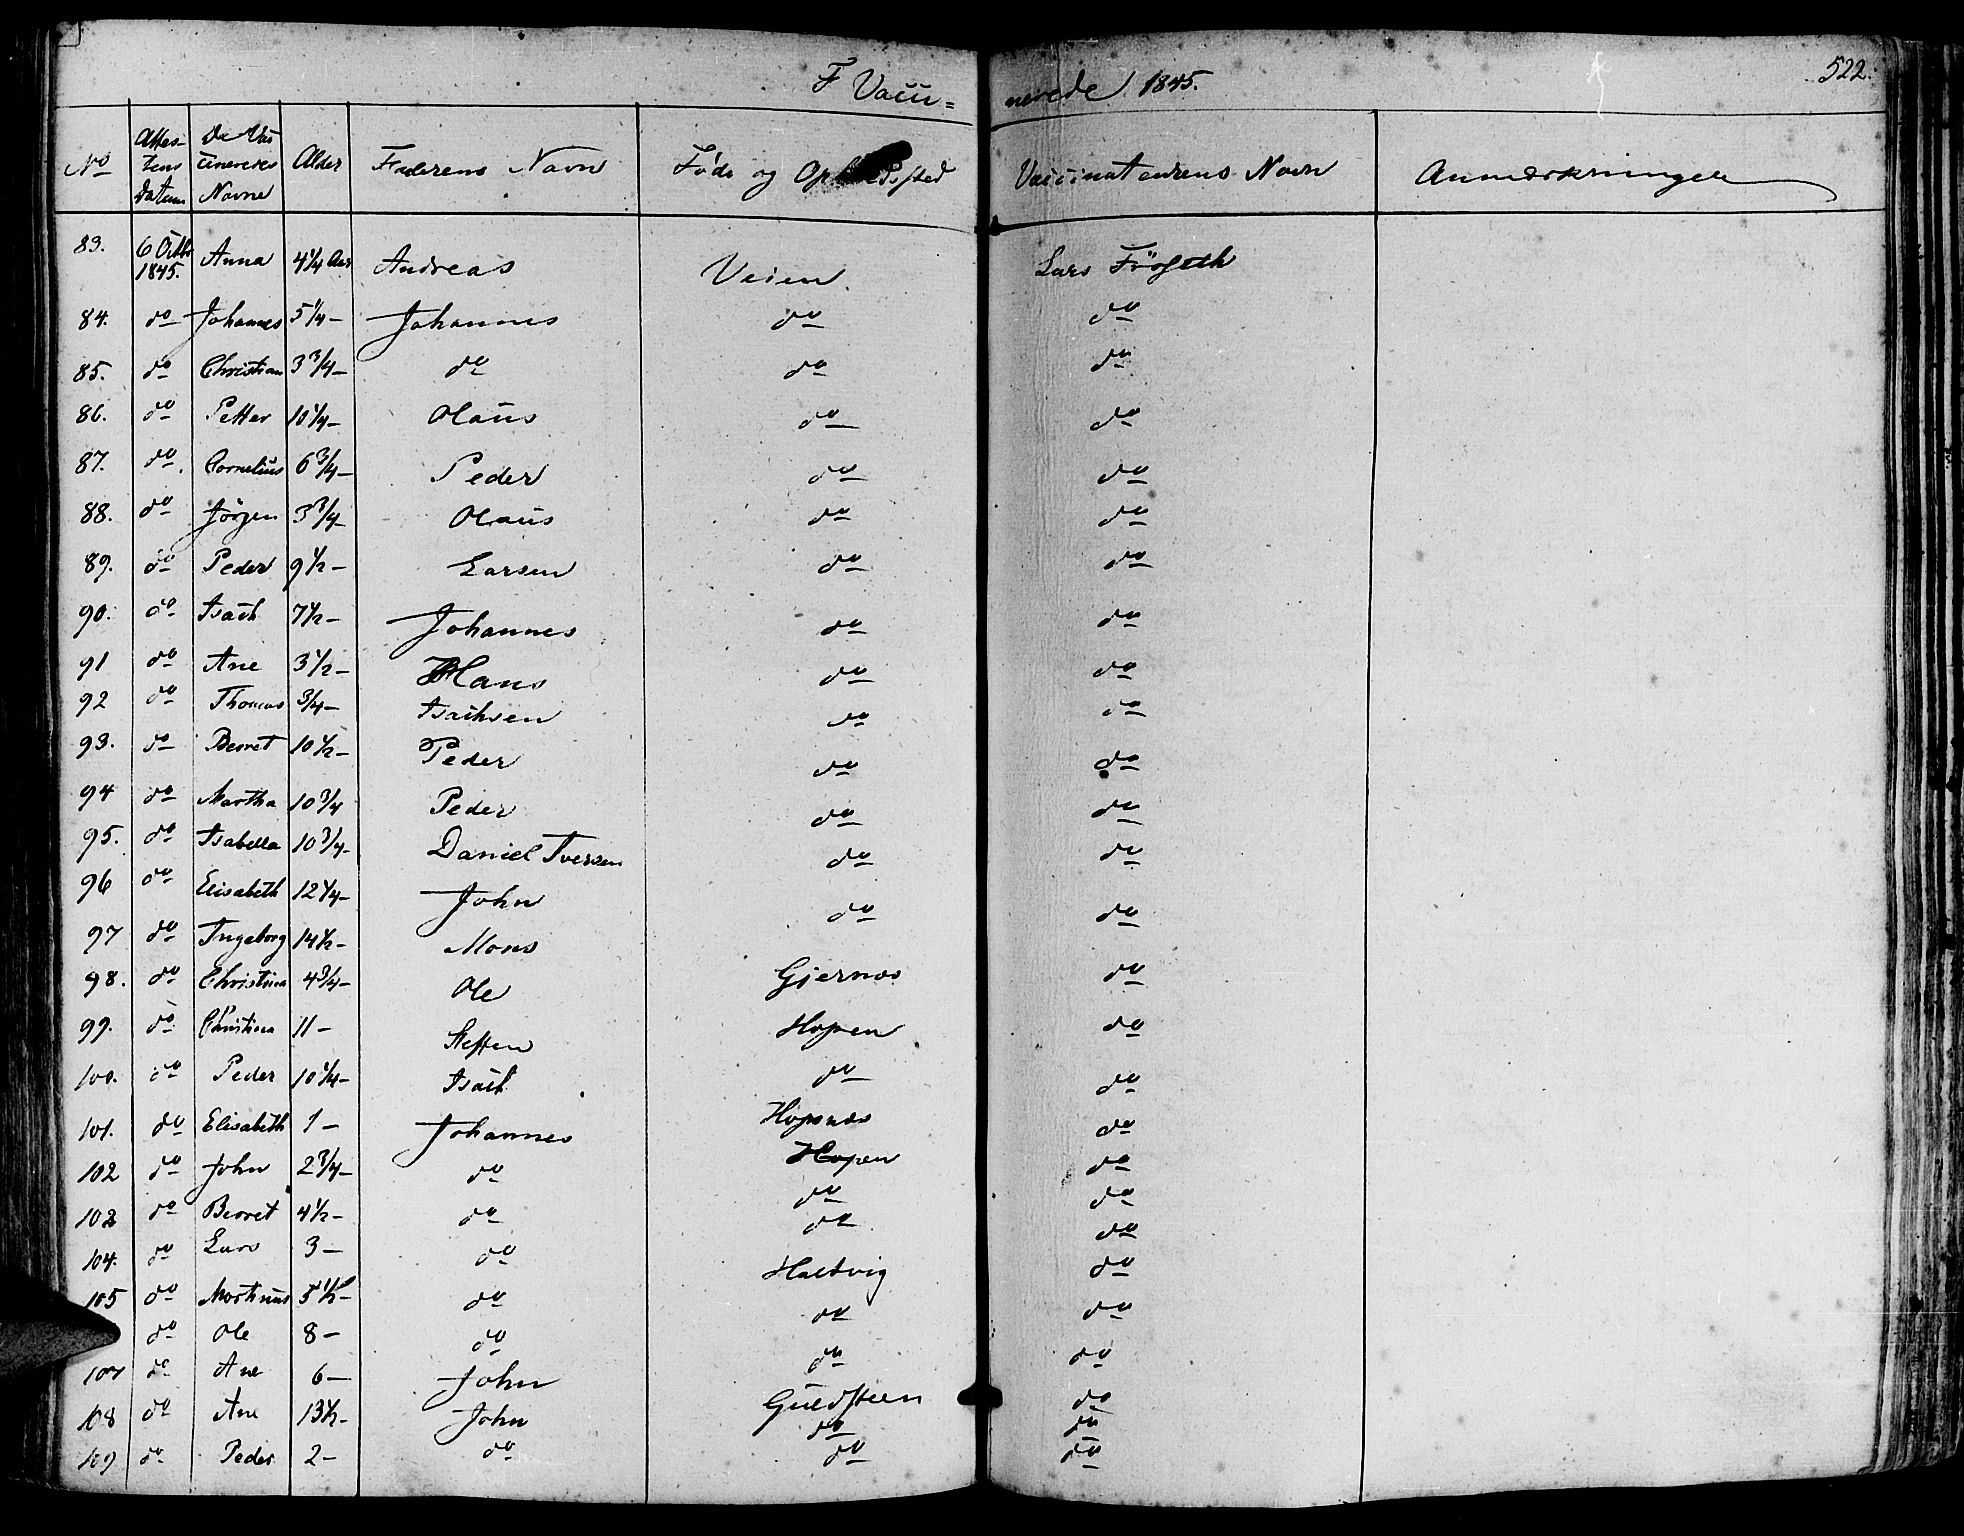 F Vacci=
nerede 1845.
522.
No
Attes-
tens
Datum
De Vac
cineredes
Navne
Alder
Faderens Navn
Føde og Opholdssted
Vaccinateurens Navn
Anmærkninger
83. 6 Octbr 1845. Anna 4 1/4 Aar Andreas Veien. Lars
84. do Johannes 5 1/4 – Johannes do do
85. do Christian 3 3/4 – do do do
86. do Petter 10 1/4 – Olaus do do
87. do. Cornelius 6 3/4 – Peder do do
88. do Jörgen 3 3/4 – Olaus do do
89. do Peder 9 1/2 – Larsen do do
90. do Isach 7 1/2 – Johannes do do
91 do Ane 3 1/2 – Hans do do
92 do Thomas 3/4 – Isachsen do do
93. do Berret 10 1/2 – Peder do do
94 do Martha 10 3/4 Peder do do
95. do Isabella 10 3/4 – Daniel Iversen do do
96 do Elisabeth 12 1/4 – John do do
97 do Ingeborg 14 1/2 – Mons
98. do Christina 4 3/4 – Ole Gjernæs do
99. do Christina 11 – Steffen Hopen do
100. do Peder 10 1/4 – Isach do do
101. do Elisabeth 1 – Johannes Hopsnæs do
102 do John 2 3/4 – do Hopen do
103 do Berret 4 1/2 – do do do
104. do Lars 3 – do do do
105 do Martinus 5 1/2 – do Haltvig do
do Ole 8 – do do do
107 do Ane 6 – John do do
108 do Ane 13 1/2 – John Guldsteen do
109 do Peder 2 – do do do
do do